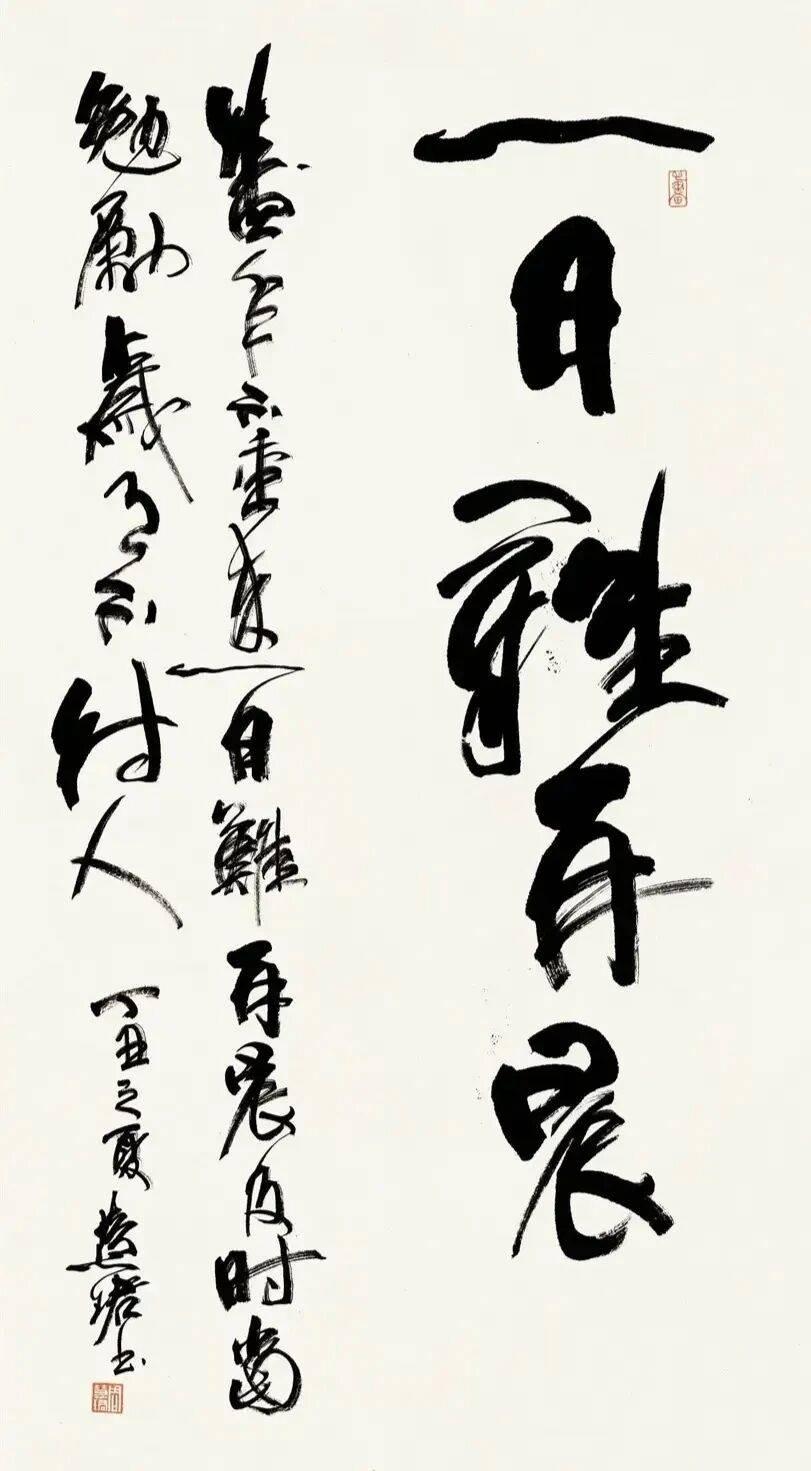 一日難再晨
盛年不重来一日難再晨及时當
勉勵歲月不待人
丁丑之夏慧珺书